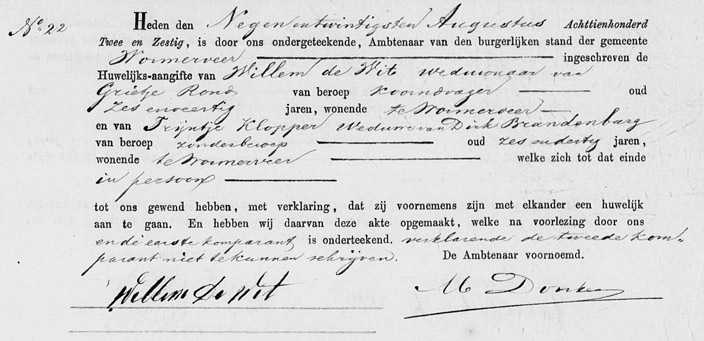 No 22
Heden den Negenentwintigsten Augustus Achttienhonderd
Twee en Zestig, is door ons ondergeteekende, Ambtenaar van den burgerlijken stand der gemeente
Wormerveer ingeschreven de
Huwelijks-aangifte van Willem de Wit weduwnaar van
Grietje Rond van beroep koorndrager oud
zes en veertig jaren, wonende te Wormerveer
en van Trijntje Klopper Weduwe van Dirk Brandenburg
van beroep zonder beroep oud zes en dertig jaren,
wonende te Wormerveer welke zich tot dat einde
in persoon
tot ons gewend hebben, met verklaring, dat zij voornemens zijn met elkander een huwelijk
aan te gaan. En hebben wij daarvan deze akte opgemaakt, welke na voorlezing door ons
en de eerste komparant, is onderteekend. verklarende de tweede kom-
parant niet te kunnen schrijven. De Ambtenaar voornoemd.
Willem de Wit M Donker